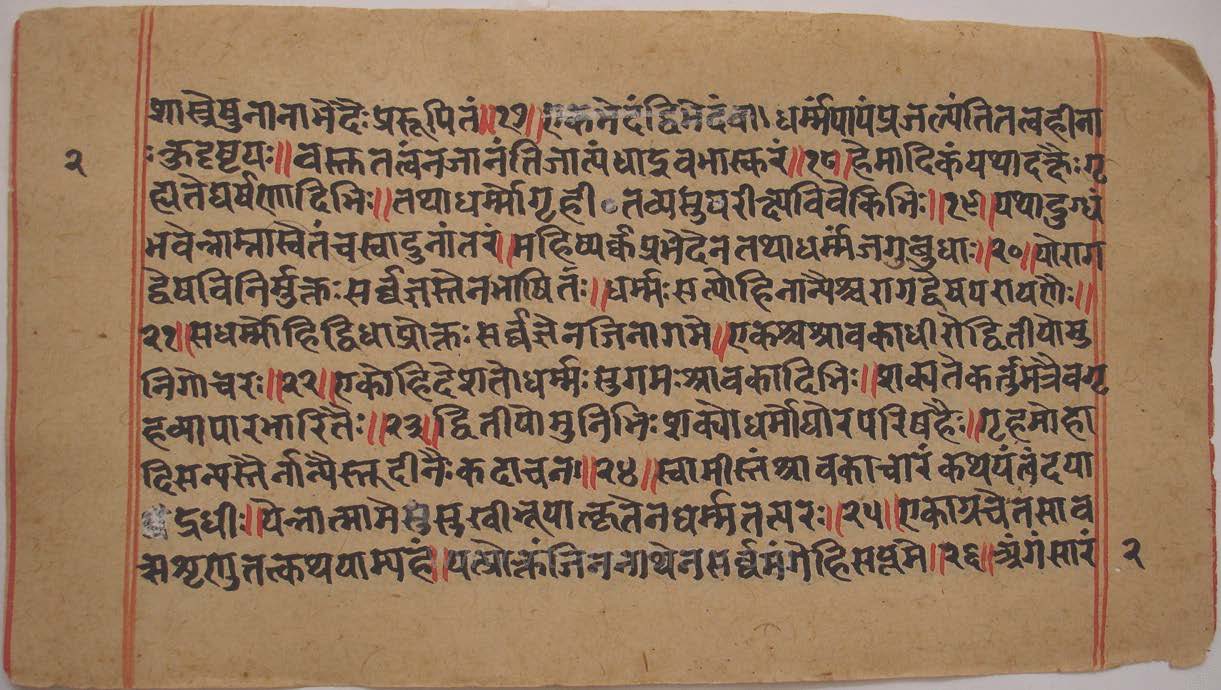 शास्त्रेषुनानाभेदैःप्ररूपितं॥१७॥एकमेदंद्विभेदंवा। धर्म्मंपापंप्रजल्पंतितत्वहीना
ःकुदृष्टयः॥वस्तुतत्वंनजानंतिजात्यंधाइवभास्करं॥१८॥हेमादिकंयथादक्षैःगृ
ह्यतेघर्षणादिभिः॥तथाधर्म्मोगृहीतव्यसुपरीक्ष्यविवेकिभिः॥१९॥यथादुग्धं
भवेन्नाम्नाश्वेतंचस्वादुनांतरं॥महिष्यर्क्कप्रभेदेनतथाधर्म्मंजगुबुधाः॥२०॥योराग
द्वेषविनिर्मुक्तःसर्वज्ञस्तेनभाषितः॥धर्म्मःसत्योहिनान्यैश्चरागद्वेषपरायणैः॥
२१॥सधर्म्मोहिद्विधाप्रोक्तःसर्वज्ञेनजिनागमे॥एकश्चश्रावकाधीरोद्वितीयोमु
निगोचरः॥२२॥एकोहिदेशतोधर्म्मःसुगमःश्रावकादिभिः॥शक्यतेकर्त्तुमत्रैवगृ
हव्यापारभारितैः॥२३॥द्वितीयोमुनिभिःशक्योधर्मोघोरपरिषहैः॥गृहमोहा
दिसन्यस्तैर्नान्यैस्तुदीनैःकदाचन॥२४॥स्वामीस्तंश्रावकाचारंकथयंत्वंदया
द्रधीः॥येनात्मामेसुसुखीभूयात्कृतेनधर्म्मतत्परः॥२५॥एकाग्रचेतसाव
त्सशृणुतत्कथयाम्यहं॥यत्प्रोक्तंजिननाथेनसर्व्वमंगेहिसप्तमे॥२६॥अंगंसारं
२
२